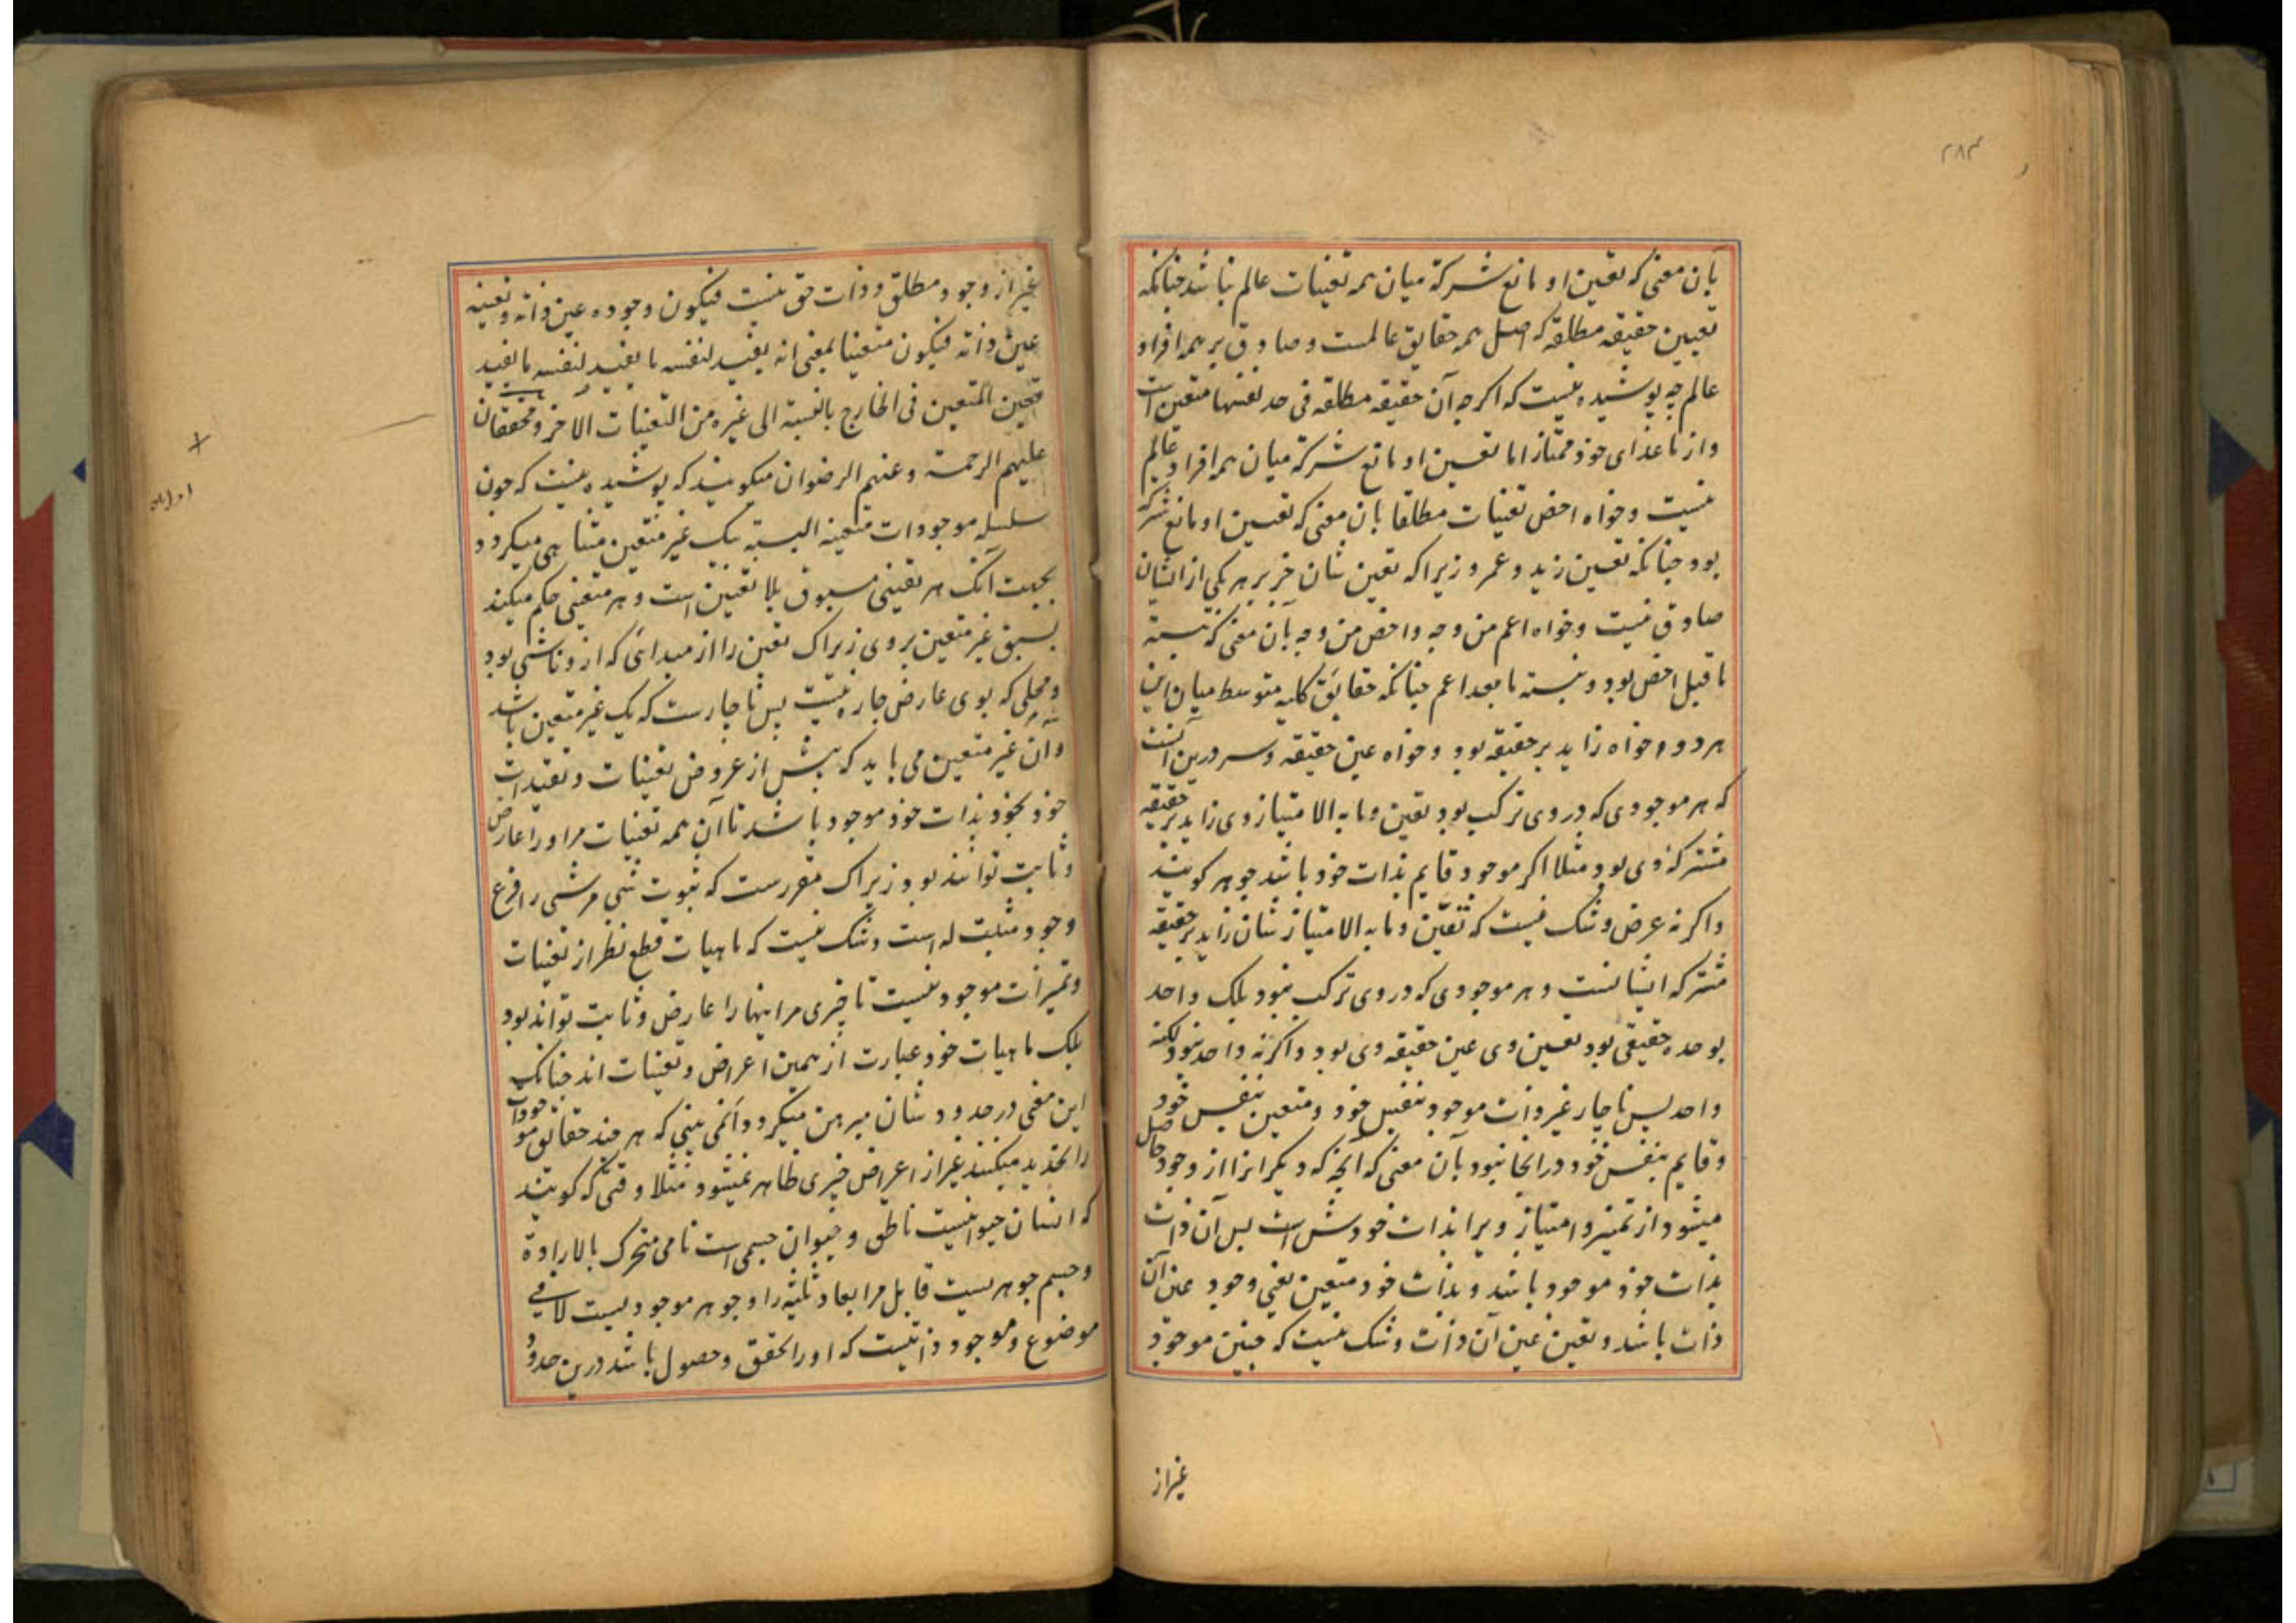 ۲۸۳
بآن معنی که تعین او مانع شرکة میان همه تعینات عالم نباشد چنانکه
تعیین حقیقه مطلقه که اصل همه حقایق عالمست و صادق بر همه افراد
عالم چه پوشیده نیست که اکرچه آن حقیقه مطلقه فی حد نفسها متعین است
و از ماعدای خود ممتاز اما تعین او مانع شرکة میان همه افراد عالم
نیست و خواه اخص تعینات مطلقا بآن معنی که تعین او مانع شرکة
بود چنانکه تعین زید و عمرو زیرا که تعین شان جز بر هر یکی از ایشان
صادق نیست و خواه اعم من وجه و اخص من وجه بآن معنی که نسبته
ما قبل اخص بود و نسبته ما بعد اعم چنانکه حقایق کلیه متوسط میان این
هر دو و خواه زاید بر حقیقه بود و خواه عین حقیقه و سر درین آنست
که هر موجودی که در وی ترکب بود تعین و ما به الامتیاز وی زاید بر حقیقه
مشترکه وی بود مثلا اکر موجود قایم بذات خود باشد جوهر کویند
و اکر نه عرض و شک نیست که تعین و ما به الامتیاز شان زاید بر حقیقه
مشترکه ایشانست و هر موجودی که در وی ترکب نبود بلک واحد
بوحده حقیقی بود تعین وی عین حقیقه وی بود و اکرنه واحد نبود لکنه
واحد پس ناچار غیر ذات موجود بنفس خود و متعین بنفس خود
و قایم بنفس خود در انجا نبود بآن معنی که آنچه که دیکرانرا از وجود حاصل
میشود از تمیز و امتیاز ویرا بذات خودش است پس آن ذات
بذات خود موجود باشد و بذات خود متعین یعنی وجود عین آن
ذات باشد و تعین عین آن ذات و شک نیست که چنین موجود
غیر از
غیر از وجود مطلق و ذات حق نیست فیکون وجوده عین ذاته و تعینه
عین ذاته فیکون متعینا بمعنی انه یفید لنفسه ما یفید لنفسه ما یفید
تعین المتعین فی الخارج بالنسبة الی غیره من التعینات الاخر و محققان
علیهم الرحمة و عنهم الرضوان میکویند که پوشیده نیست که چون
سلسله موجودات متعینه البسته بیک غیر متعین متناهی میکردد
بجهت آنک هر تعینی مسبوق بلا تعین است و هر متعینی حکم میکند
بسبق غیر متعین بر وی زیراک تعین را از مبدائی که ازو ناشی بود
و محلی که بوی عارض چاره نیست پس ناچارست که یک غیر متعین باشد
و آن غیر متعین می باید که پیش از عروض تعینات و تقیدات
خود بخود بذات خود موجود باشد تا آن همه تعینات مر او را عارض
و ثابت توانند بود زیراک مقررست که ثبوت شی مرشی را فرع
وجود مثبت له است و شک نیست که ماهیات قطع نظر از تعینات
و تمیزات موجود نیست تا چیزی مر اینها را عارض و ثابت تواند بود
بلک ماهیات خود عبارت از همین اعراض و تعینات اند چنانک
این معنی در حدود شان مبرهن میکردد آنمی بینی که هر چند حقایق موجودات
را تحدید میکنند غیر از اعراض چیزی ظاهر نمیشود مثلا وقتی که کویند
که انسان حیوانیست ناطق و حیوان جسمی است نامی متحرک بالاراده
و جسم جوهریست قابل مر ابعاد ثلثه را و جوهر موجودیست لا فی
موضوع و موجود ذاتیست که او را تحقق و حصول باشد درین حدود